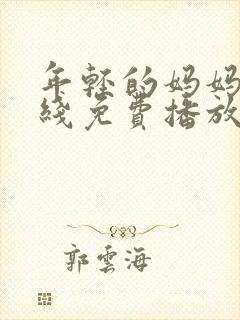 年轻的妈妈
线免费播放
郭云海